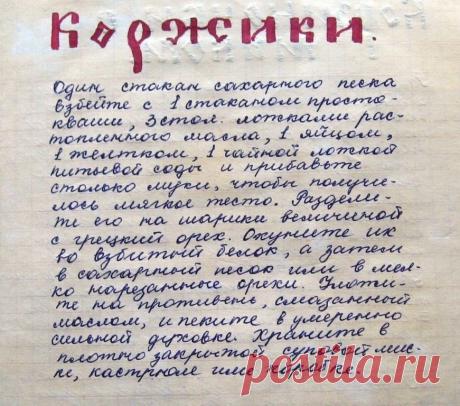 Коржики.
Один стакан сахарного песка
взбейте с 1 стаканом просто-
кваши, 3 стол. ложками рас-
топленного масла, 1 яйцом,
1 желтком, 1 чайной ложкой
питьевой соды и прибавьте
столько муки, чтобы получи-
лось мягкое тесто. Раздели-
те его на шарики величиной
с грецкий орех. Окуните их
во взбитый белок, а затем
в сахарный песок или в мел-
ко нарезанные орехи. Уложи-
те на противень, смазанный
маслом, и пеките в умеренно
сильной духовке. Храните в
плотно закрытой суповой мис-
ке, кастрюле или коробке.
posta-na.ru